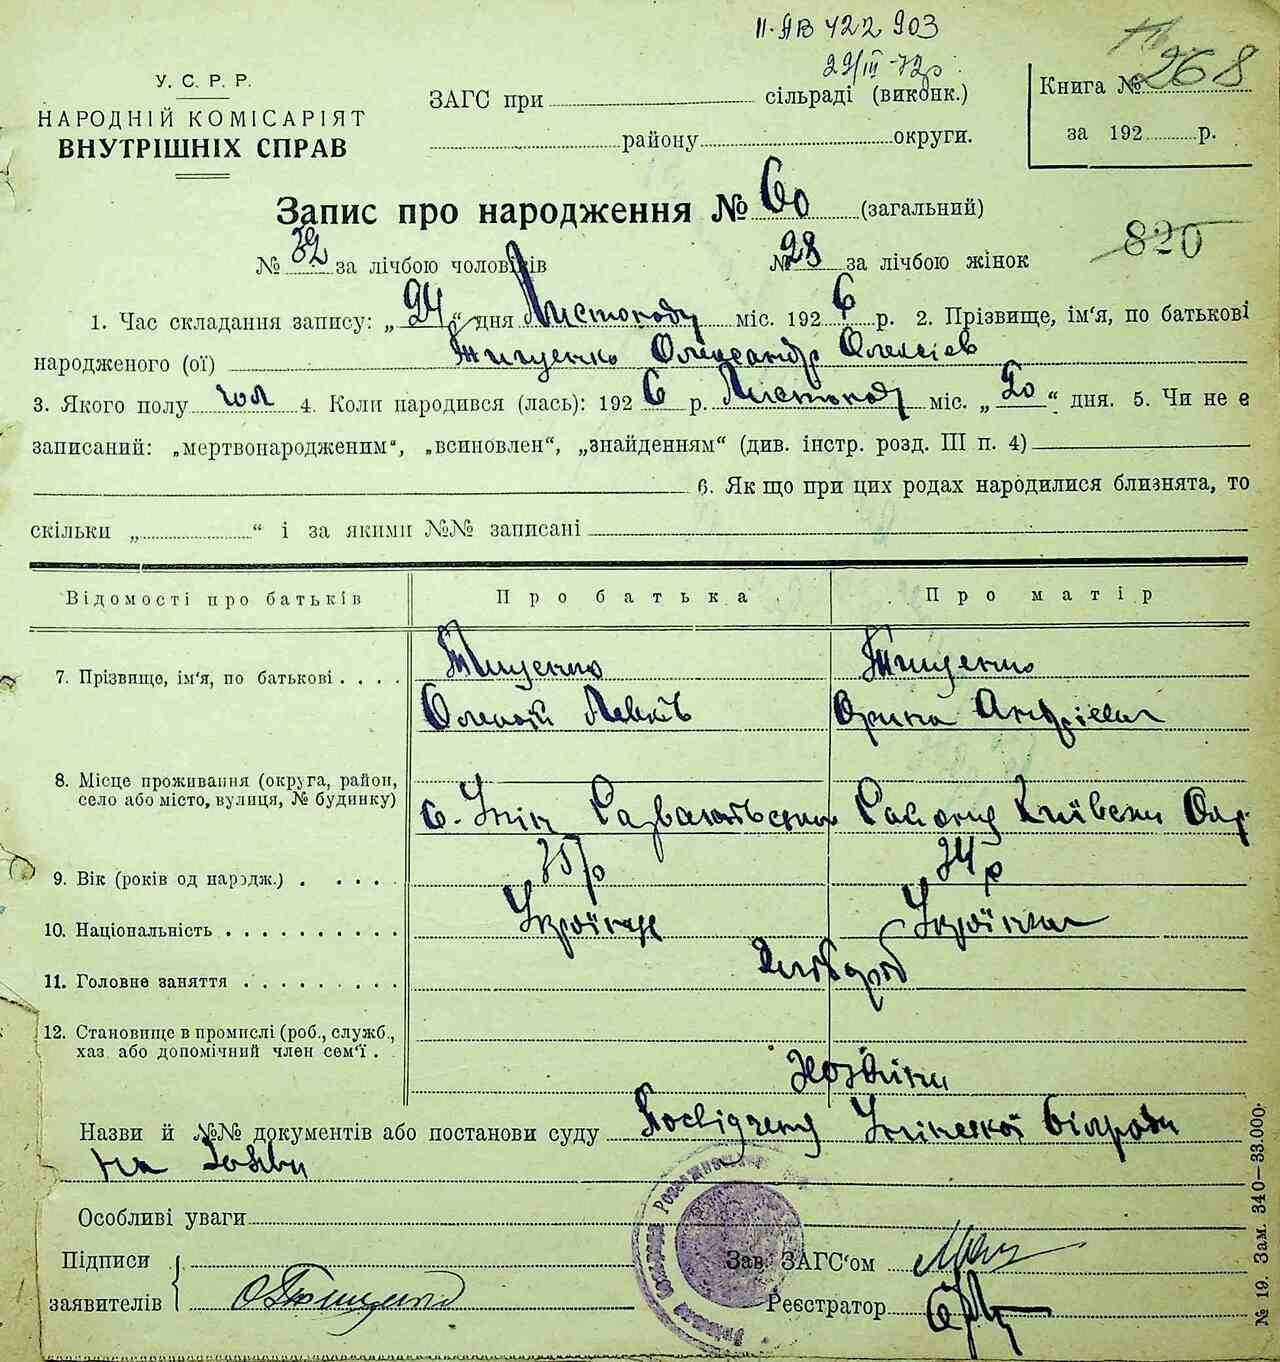 II-АВ 422 903
29/III-72р.
У. С. Р. Р.
НАРОДНІЙ КОМІСАРІЯТ
ВНУТРІШНІХ СПРАВ
ЗАГС при сільраді (виконк.)
району округи.
Книга № 268
за 192 р.
Запис про народження № 60 (загальний)
820
№ 32 за лічбою чоловіків № 28 за лічбою жінок
1. Час складання запису: „24“ дня Листопаду міс. 1926 р. 2. Прізвище, ім'я, по батькові
народженого (ої) Тищенко Олександр Олексіев
3. Якого полу чол 4. Коли народився (лась): 1926 р. Листопаду міс. „20“ дня. 5. Чи не є
записаний: „мертвонародженим“, „всиновлен“, „знайденням“ (див. інстр. розд. III п. 4)
6. Як що при цих родах народилися близнята, то
скільки „ “ і за якими №№ записані
Відомості про батьків Про батька Про матір
7. Прізвище, ім'я, по батькові Тищенко Тищенко
Олексій Левків Орина Андріевна
8. Місце проживання (округа, район,
село або місто, вулиця, № будинку) с. Район Київськ Окр.
9. Вік (років од народж.) 35 р 34 р
10. Національність Українец Українка
11. Головне заняття Хлібороб
12. Становище в промислі (роб., служб.,
хаз. або допомічний член сем'ї Хозяїни
Назви й №№ документів або постанови суду Посвідчення Сілради
на
Особливі уваги
Підписи
заявителів О Тищенко
Зав. ЗАГС'ом
Реєстратор
№ 19. Зам. 340—33.000.